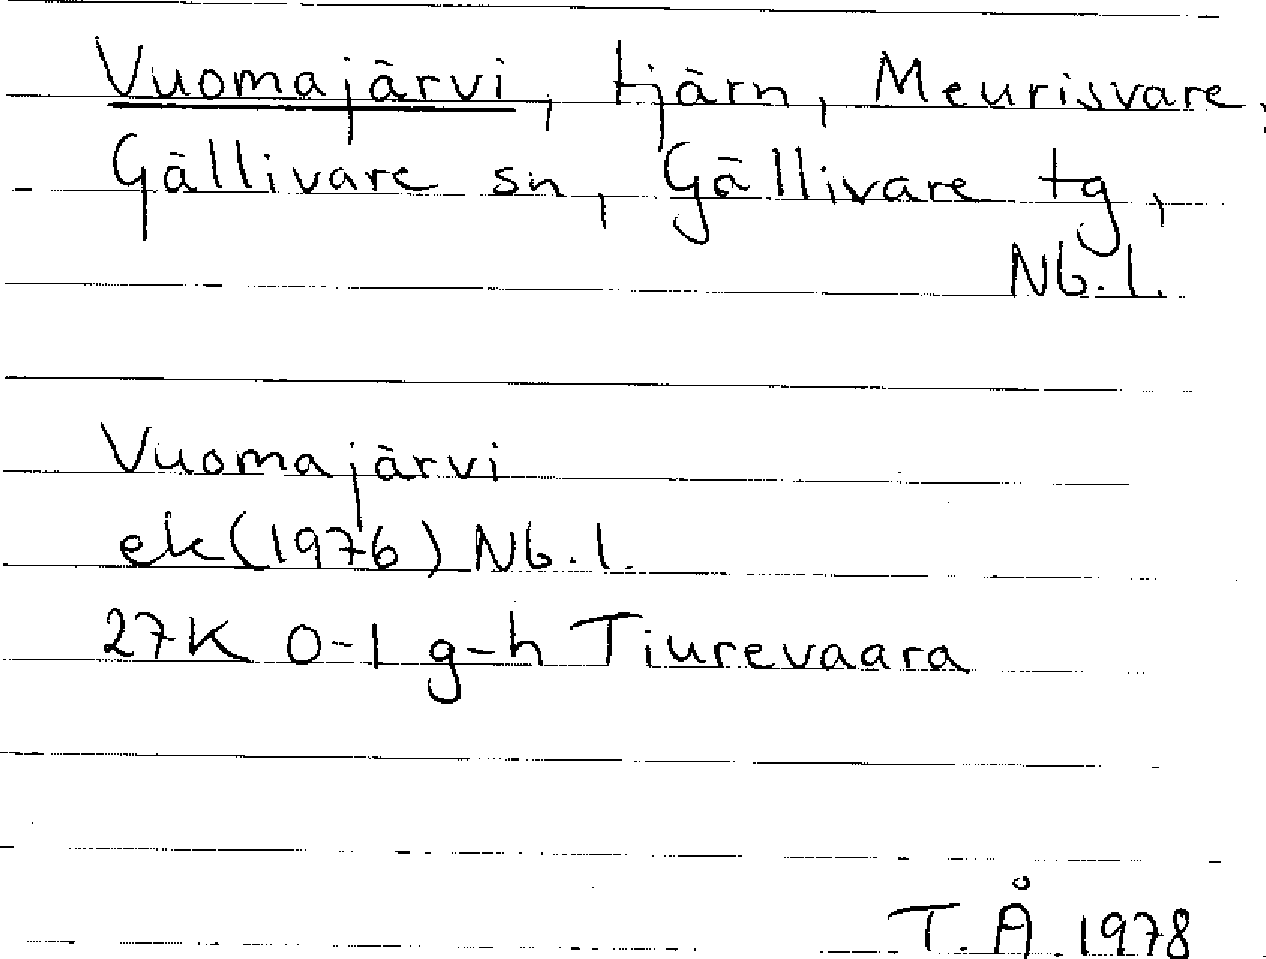 Vuomajärvi, tjärn, Meurisvare,
Gällivare sn, Gällivare tg,
Nb.l.
Vuomajärvi
ek(1976) Nb.l.
27K 0-1 g-h Tiurevaara
T.Å.1978